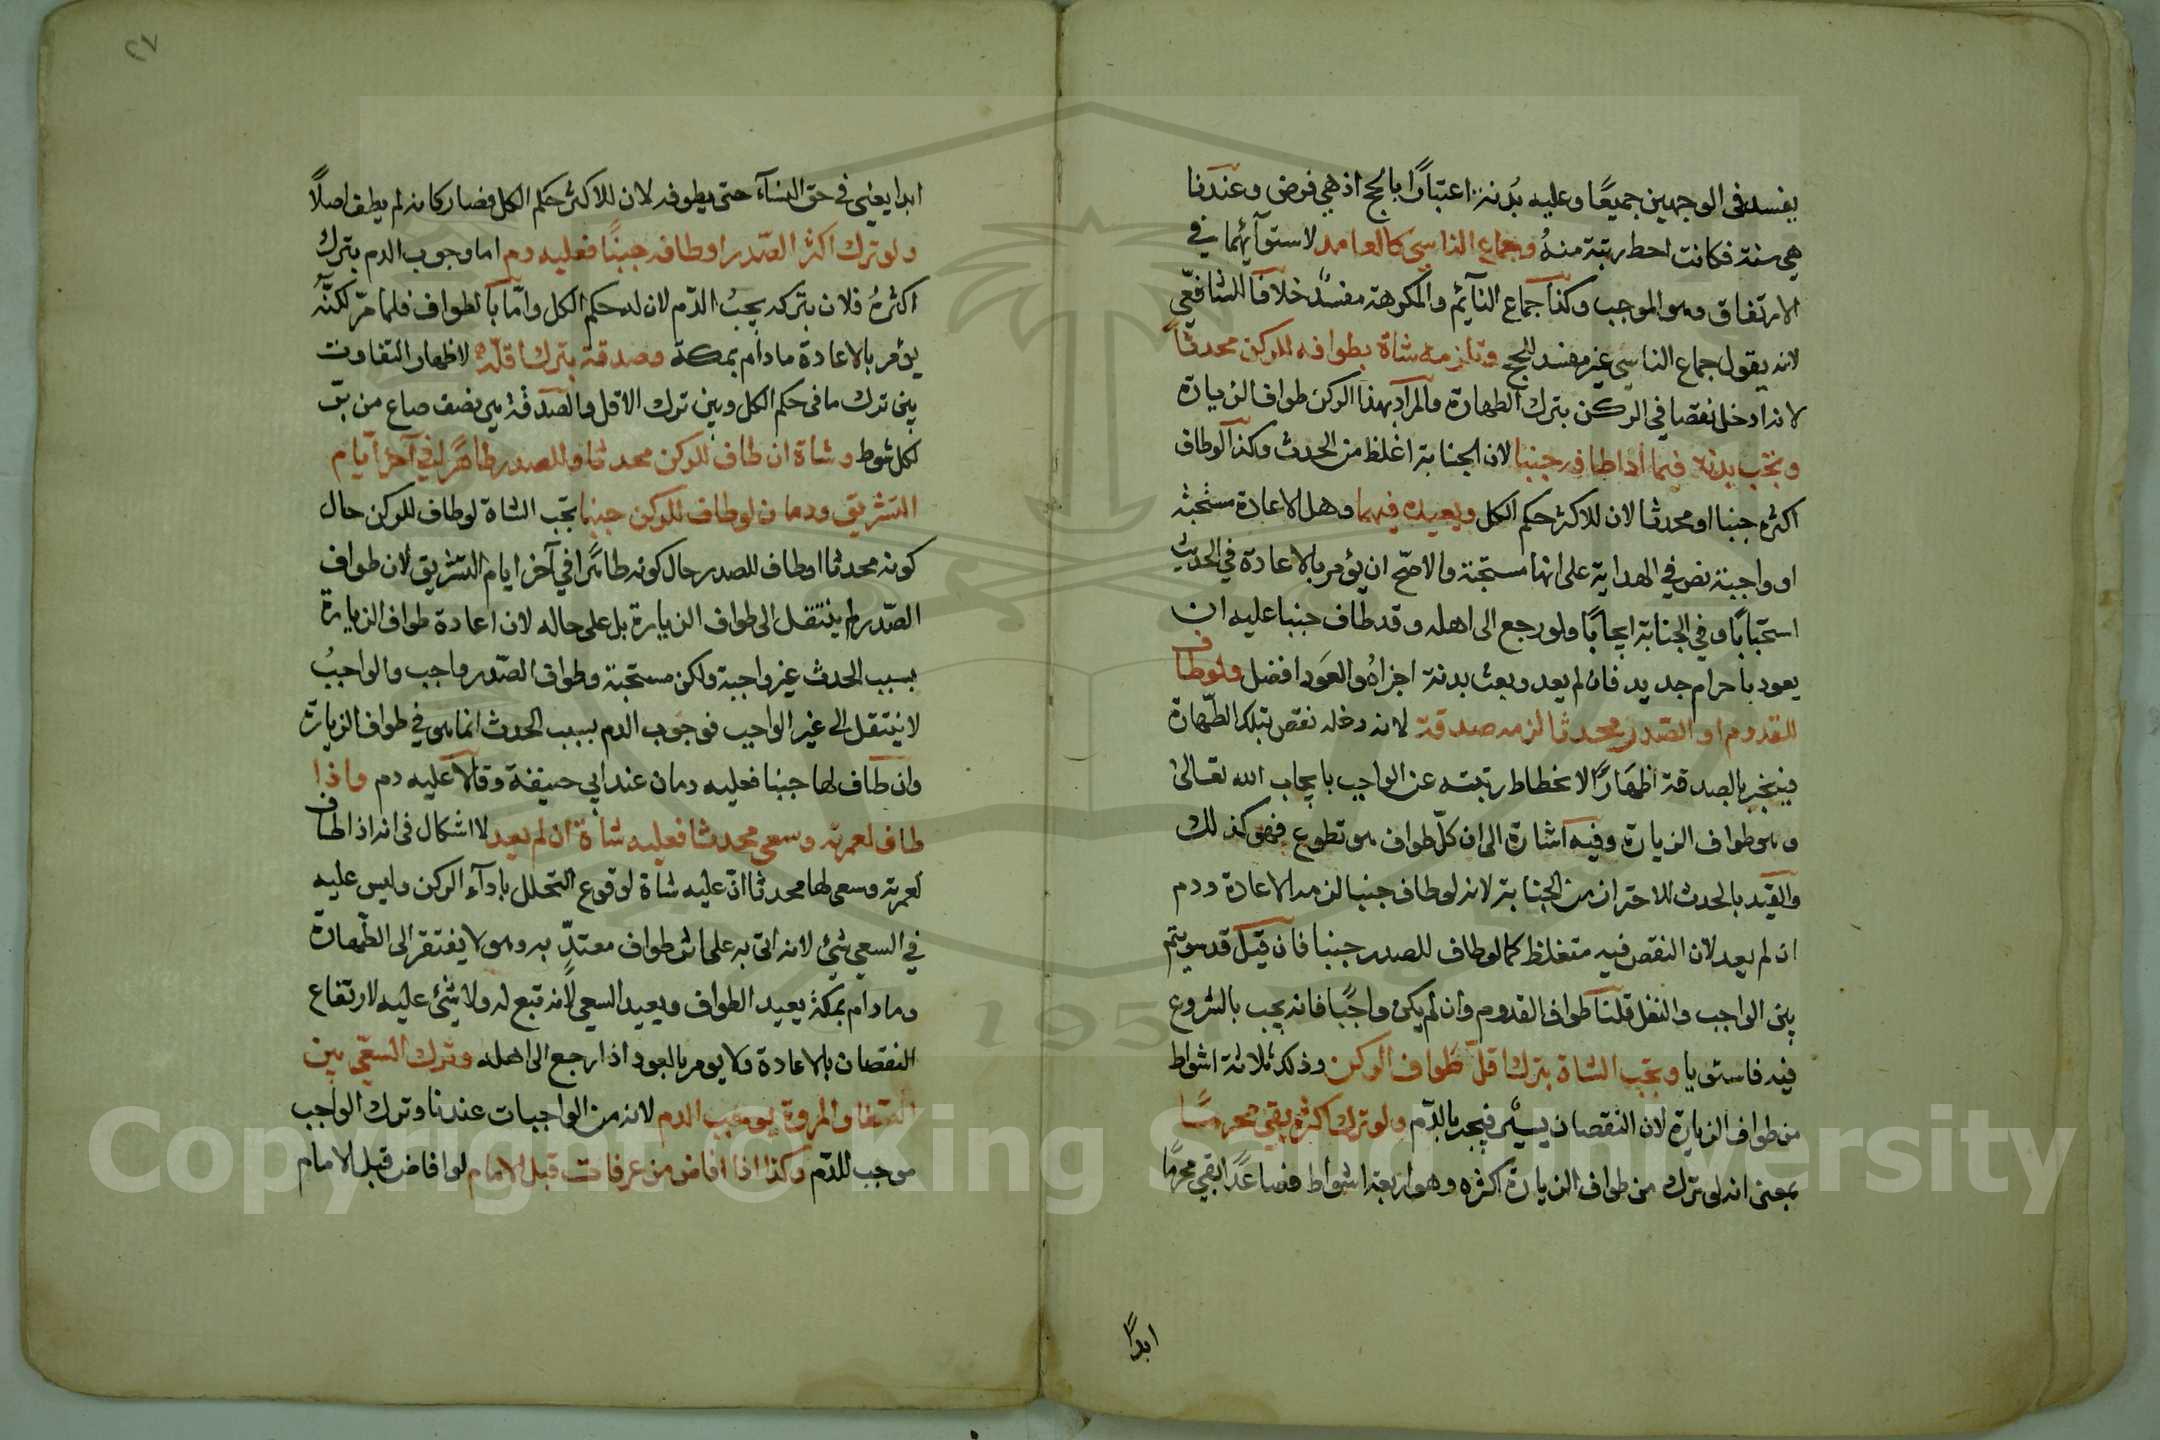 يفسد في الوجهين جميعًا وعليه بُدنة اعتبارًا بالحج اذ هي فرض وعندنا
هي سنة فكانت احط رتبة منهُ وجماع الناسي كالعامد لاستوآئهما في
الارتفاق وهو الموجب وكذا جماع النآئم والمكرهة مفسدٌ خلافا للشافعّي
لانه يقول جماع الناسي غير مفسد للحج وتلزمه شاة بطوافه للركن محدثاً
لانه ادخل نقصا في الركن بترك الطهارة والمراد بهذا الركن طواف الزيارة
وتجب بدنة فيما اذا طافه جنبا لان الجنابة اغلظ من الحدث وكذا لو طاف
اكثره جنبا او محدثا لان للاكثر حكم الكل ويعيده فيهما وهل الاعادة مستحبة
او واجبة نص في الهداية على انها مستحبة والاصحّ ان يؤمر بالاعادة في الحديث
استحبابًا وفي الجنابة ايجابًا ولو رجع الى اهله وقد طاف جنبا عليه ان
يعود باحرام جديد فان لم يعد وبعث بدنة اجزاهُ والعَود افضل ولو طاف
للقدوم او الصّدر محدثا لزمه صدقة لانه دخله نقص بتلك الطّهارة
فينجبر بالصدقة اظهَارًا لانحطاط رتبته عن الواجب بايجاب الله تعالى
وهو طواف الزيارة وفيه اشارة الى ان كلّ طواف هو تطوع فهو كذلك
والقيد بالحدث للاحتراز من الجنابة لانه لو طاف جنبا لزمه الاعادة ودم
ان لم يعد لان النقص فيه متغلظ كما لو طاف للصدر جنبا فان قيل قد سويتم
بين الواجب والنفل قلنا طواف القدوم وان لم يكن واجبًا فانه يجب بالشروع
فيه فاستويا وتجب الشاة بترك اقل طواف الركن وذلك ثلاثة اشواط
من طواف الزيارة لان النقصان يسيرٌ فيجبر بالدّم ولو ترك اكثره بقي محرمًا
بمعنى انه لو ترك من طواف الزيارة اكثره وهو اربعة اشواط فصاعدًا بقي محرمًا
ابدًا
٢٧
ابدا يعني في حق النسآء حتى يطوفه لان للاكثر حكم الكل فصار كانه لم يطف اصلاً
ولو ترك اكثر الصّدر او طافه جنبًا فعليه دم اما وجوب الدم بترك
اكثرهُ فلان بتركه يجبُ الدّم لان له حكم الكل وامّا بالطواف فلما مرّ لكنّه
يؤمر بالاعادة مادام بمكة وصدقة بترك اقلّه لاظهار التفاوت
بين ترك ما في حكم الكل وبين ترك الاقل والصّدقة هي نصف صاع من برّ
لكل شوط وشاة ان طاف للركن محدثا وللصدر طاهرًا في آخر ايام
التشريق ودمان لو طاف للركن جنبا تجب الشاة لو طاف للركن حال
كونه محدثا او طاف للصدر حال كونه طاهرًا في آخر ايام التشريق لان طواف
الصّدر لم ينتقل الى طواف الزيارة بل على حاله لان اعادة طواف الزيارة
بسبب الحدث غير واجبة ولكن مستحبّة وطواف الصّدر واجب والواجبُ
لا ينتقل الى غير الواجب فوجوب الدم بسبب الحدث انما هو في طواف الزيارة
وان طاف لها جنبا فعليه دمان عند ابي حنيفة وقالا عليه دم واذا
طاف لعمرته وسعى محدثا فعليه شاة ان لم يعد لا اشكال في انه اذا طاف
لعمرته وسعى لها محدثا انّ عليه شاة لوقوع التحلل باداء الركن وليس عليه
في السعي شئ لانه اتى به على اثر طواف معتدٍّ به وهو لا يفتقر الى الطّهارة
ومادام بمكة يعيد الطواف ويعيد السعي لأنه تبع له ولا شئ عليه لارتفاع
النقصان بالاعادة ولا يومر بالعود اذا رجع الى اهله وترك السعي بين
الصفا والمروة يوجب الدم لانه من الواجبات عندنا وترك الواجب
موجب للدّم وكذا اذا افاض من عرفات قبل الامام لو افاض قبل الامام
Copyright © King Saud University
195